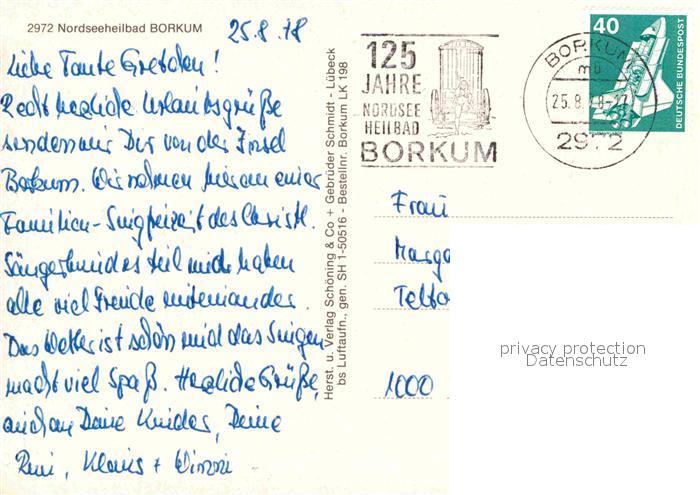 2972 Nordseeheilbad BORKUM
25.8.78
Liebe Tante Gretchen!
Recht herzliche Urlaubsgrüße
senden wir Dir von der Insel
Borkum. Wir nehmen hier an einer
Familien-Singfreizeit des Christl.
Sängerbundes teil und haben
alle viel Freude miteinander.
Das Wetter ist schön und das Singen
macht viel Spaß. Herzliche Grüße,
auch an Deine Kinder, Deine
Klaus +
Herst. u. Verlag Schöning & Co + Gebrüder Schmidt - Lübeck
bs Luftaufn., gen. SH 1-50516 - Bestellnr. Borkum LK 198
125
JAHRE
NORDSEE
HEILBAD
BORKUM
BORKUM
mb
25.8.
2972
40
DEUTSCHE BUNDESPOST
Frau
Marga
Telto
1000
privacy protection
Datenschutz